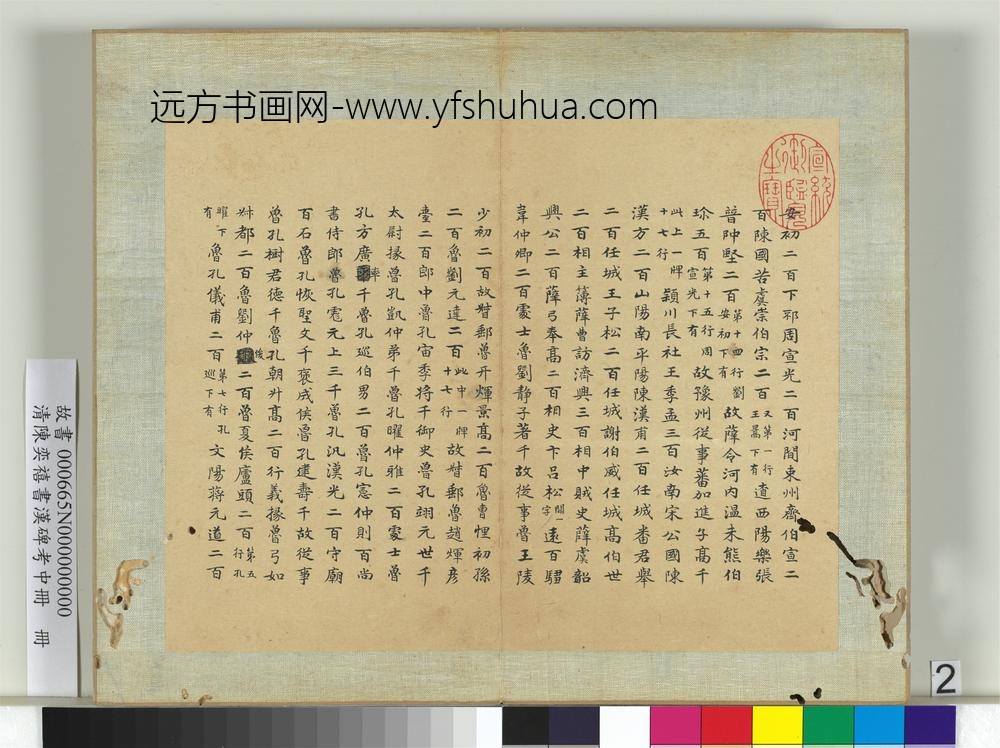 远方书画网-www.yfshuhua.com
宣統御臨完生寶
安初二百下邳周宣光二百河間束州齊伯宣二
百陳國苦虞崇伯宗二百又第一行王暠下有遺西陽樂張
普仲堅二百第十四行劉安初下有故薛令河內溫朱熊伯
珎五百第十五行周宣光下有故豫州從事蕃加進子高千
此上一牌十七行潁川長社王季孟三百汝南宋公國陳
漢方二百山陽南平陽陳漢甫二百任城番君舉
二百任城王子松二百任城謝伯威任城高伯世
二百相主簿薛曹訪濟興三百相中賊史薛虞韶
興公二百薛弓奉高二百相史卞呂松闕一字遠百騶
韋仲卿二百處士魯劉静子著千故從事魯王陵
少初二百故督郵魯开煇景高二百魯曹悝初孫
二百魯劉元達二百此中一牌十七行故督郵魯趙煇彦
臺二百郎中魯孔宙季將千御史魯孔翊元世千
太尉掾魯孔凱仲弟千魯孔曜仲雅二百處士魯
孔方廣率千魯孔巡伯男二百魯孔憲仲則百尚
書侍郎魯孔彪元上三千魯孔汎漢光二百守廟
百石魯孔恢聖文千褒成侯魯孔建壽千故從事
魯孔樹君德千魯孔朝升高二百行義掾魯弓如
叔都二百魯劉仲俊二百魯夏侯廬頭二百第五行孔
曜下有魯孔儀甫二百第七行孔巡下有文陽蔣元道二百
故書 000665N000000000
清陳奕禧書漢碑考中冊 冊
2